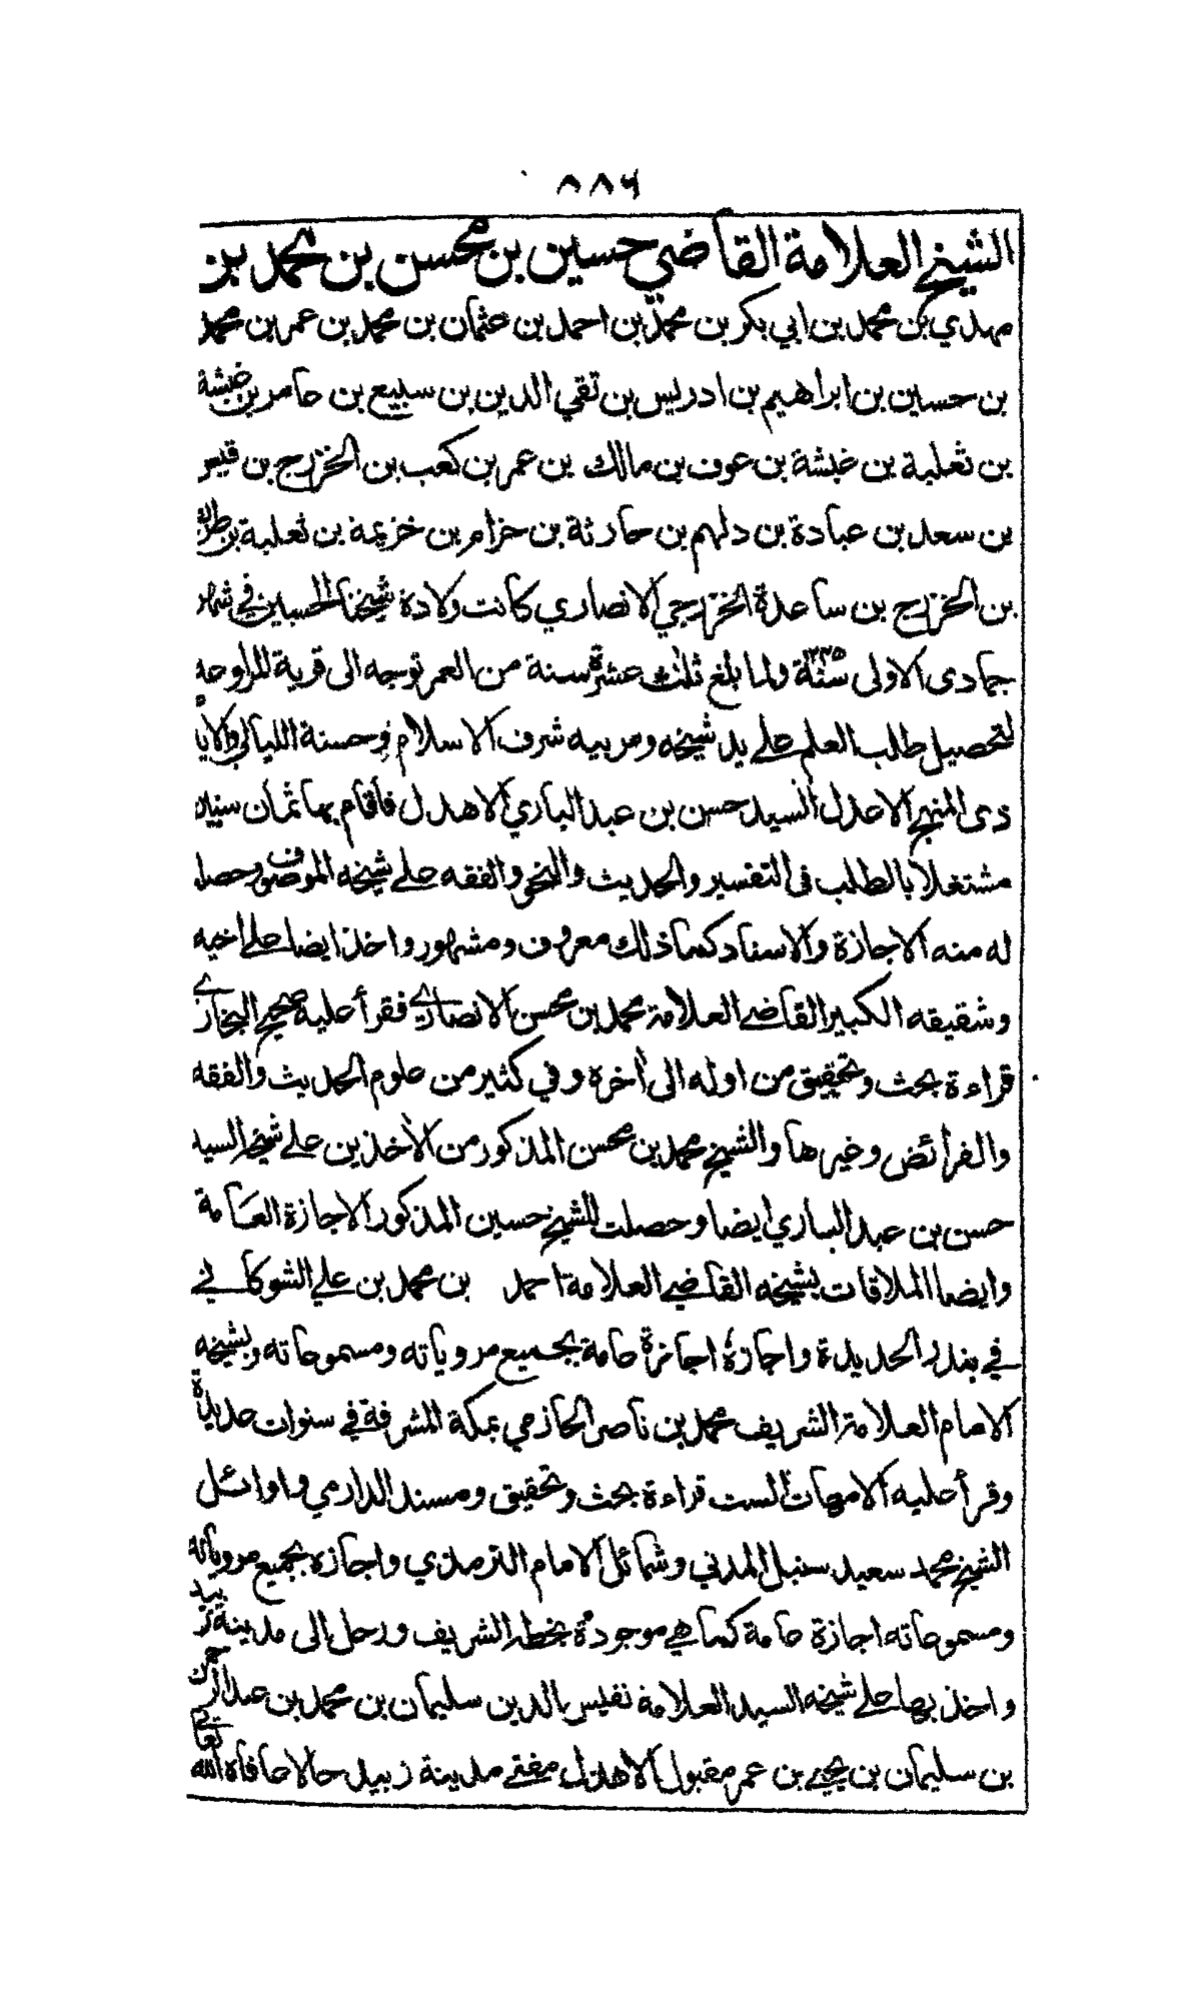 ٨٨٦
الشيخ العلامة القاضي حسين بن محسن بن محمد بن
مهدي بن محمد بن ابي بكر بن محمد بن احمد بن عثمان بن محمد بن عمر بن محمد
بن حسين بن ابراهيم بن ادريس بن تقي الدين بن سبيع بن عامر بن غبشة
بن ثعلبة بن غبشة بن عوف بن مالك بن عمر بن كعب بن الخزرج بن قيس
بن سعد بن عبادة بن دلهم بن حارثة بن حزام بن خزيمة بن ثعلبة بن طريف
بن الخزرج بن ساعدة الخزرجي الانصاري كانت ولادة شيخنا الحسين في شهر
جمادى الاولى سنة ١٢٢٥ ولما بلغ ثلث عشرة سنة من العمر توجه الى قرية المراوعه
لتحصيل طلب العلم على يد شيخه ومربيه شرف الاسلام وحسنة الليالي والايام
ذى المنهج الاعدل السيد حسن بن عبد الباري الاهدل فاقام بها ثمان سنين
مشتغلا بالطلب فى التفسير والحديث والنحو والفقه على شيخه الموصوف وحصل
له منه الاجازة والاسناد كما ذلك معروف ومشهور واخذ ايضا على اخيه
وشقيقه الكبير القاضي العلامة محمد بن محسن الانصاري فقرأ عليه صحيح البخاري
قراءة بحث وتحقيق من اوله الى أخره وفي كثير من علوم الحديث والفقه
والفرائض وغيرها والشيخ محمد بن محسن المذكور من الأخذين على شيخه السيد
حسن بن عبد الباري ايضا وحصلت للشيخ حسين المذكور الاجازة العامة
وايضا الملاقات بشيخه القاضي العلامة احمد بن محمد بن علي الشوكاني
في بندر الحديدة واجازه اجازة عامة بجميع مروياته ومسموعاته وبشيخه
الامام العلامة الشريف محمد بن ناصر الحازمي بمكة المشرفة في سنوات عديدة
وقرأ عليه الامهات الست قراءة بحث وتحقيق ومسند الدارمي واوائل
الشيخ محمد سعيد سنبل المدني وشمائل الامام الترمذي واجازه بجميع مروياته
ومسموعاته اجازة عامة كما هي موجودة بخطه الشريف ورحل الى مدينة زبيد
واخذ بها على شيخه السيد العلامة نفيس الدين سليمان بن محمد بن عبد الرحمن
بن سليمان بن يحيى بن عمر مقبول الاهدل مفتي مدينة زبيد حالا عافاه الله تعالى